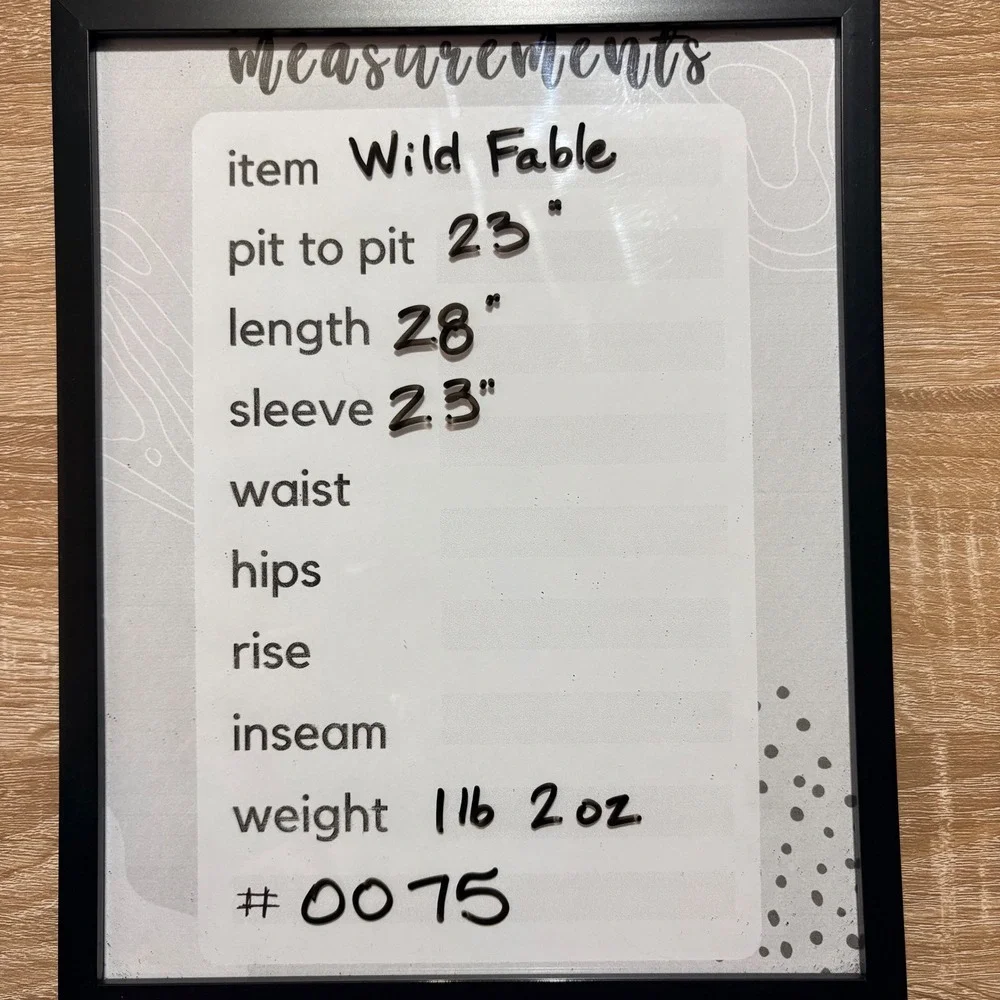 measurements
item Wild Fable
pit to pit 23"
length 28"
sleeve 23"
waist
hips
rise
inseam
weight 1 lb 2 oz
# 0075